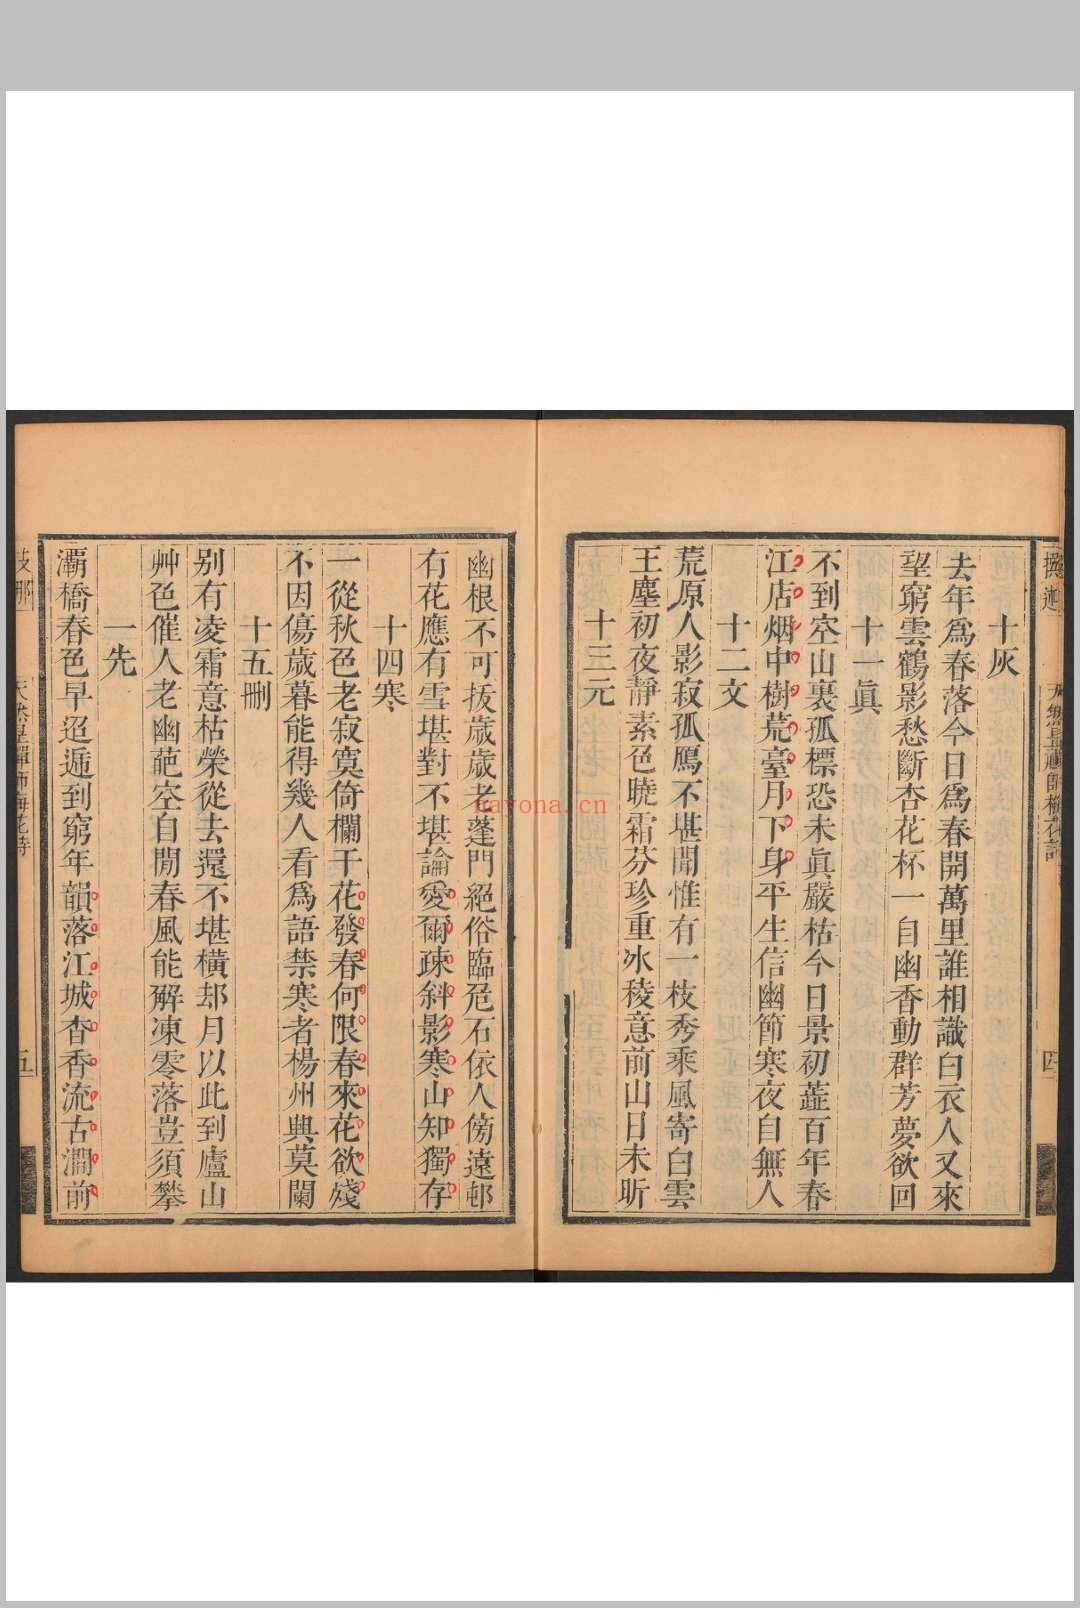 十灰
去年爲春落今日爲春開萬里誰相識白衣人又來
望窮雲鶴影愁斷杏花杯一自幽香動群芳夢欲回
十一眞
不到空山裏孤標恐未眞嚴枯今日景初蘁百年春
江店烟中樹荒臺月下身平生信幽節寒夜自無人
十二文
荒原人影寂孤鴈不堪聞惟有一枝秀乘風寄白雲
玉塵初夜靜素色曉霜芬珍重冰稜意前山日未昕
十三元
幽根不可拔歲歲老蓬門絕俗臨危石依人傍遠邨
有花應有雪堪對不堪論愛爾疎斜影寒山知獨存
十四寒
一從秋色老寂寞倚欄干花發春何限春來花欲殘
不因傷歲暮能得幾人看爲語禁寒者楊州興莫闌
十五刪
别有凌霜意枯榮從去還不堪橫却月以此到廬山
艸色催人老幽葩空自閒春風能解凍零落豈須攀
一先
灞橋春色早迢遞到窮年韻落江城杳香流古澗前
天然昰禪師梅花詩
四
五
nayona.cn